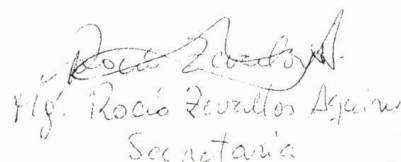 Rocío Zevallos A.
Mg. Rocío Zevallos Aquino
Secretaria